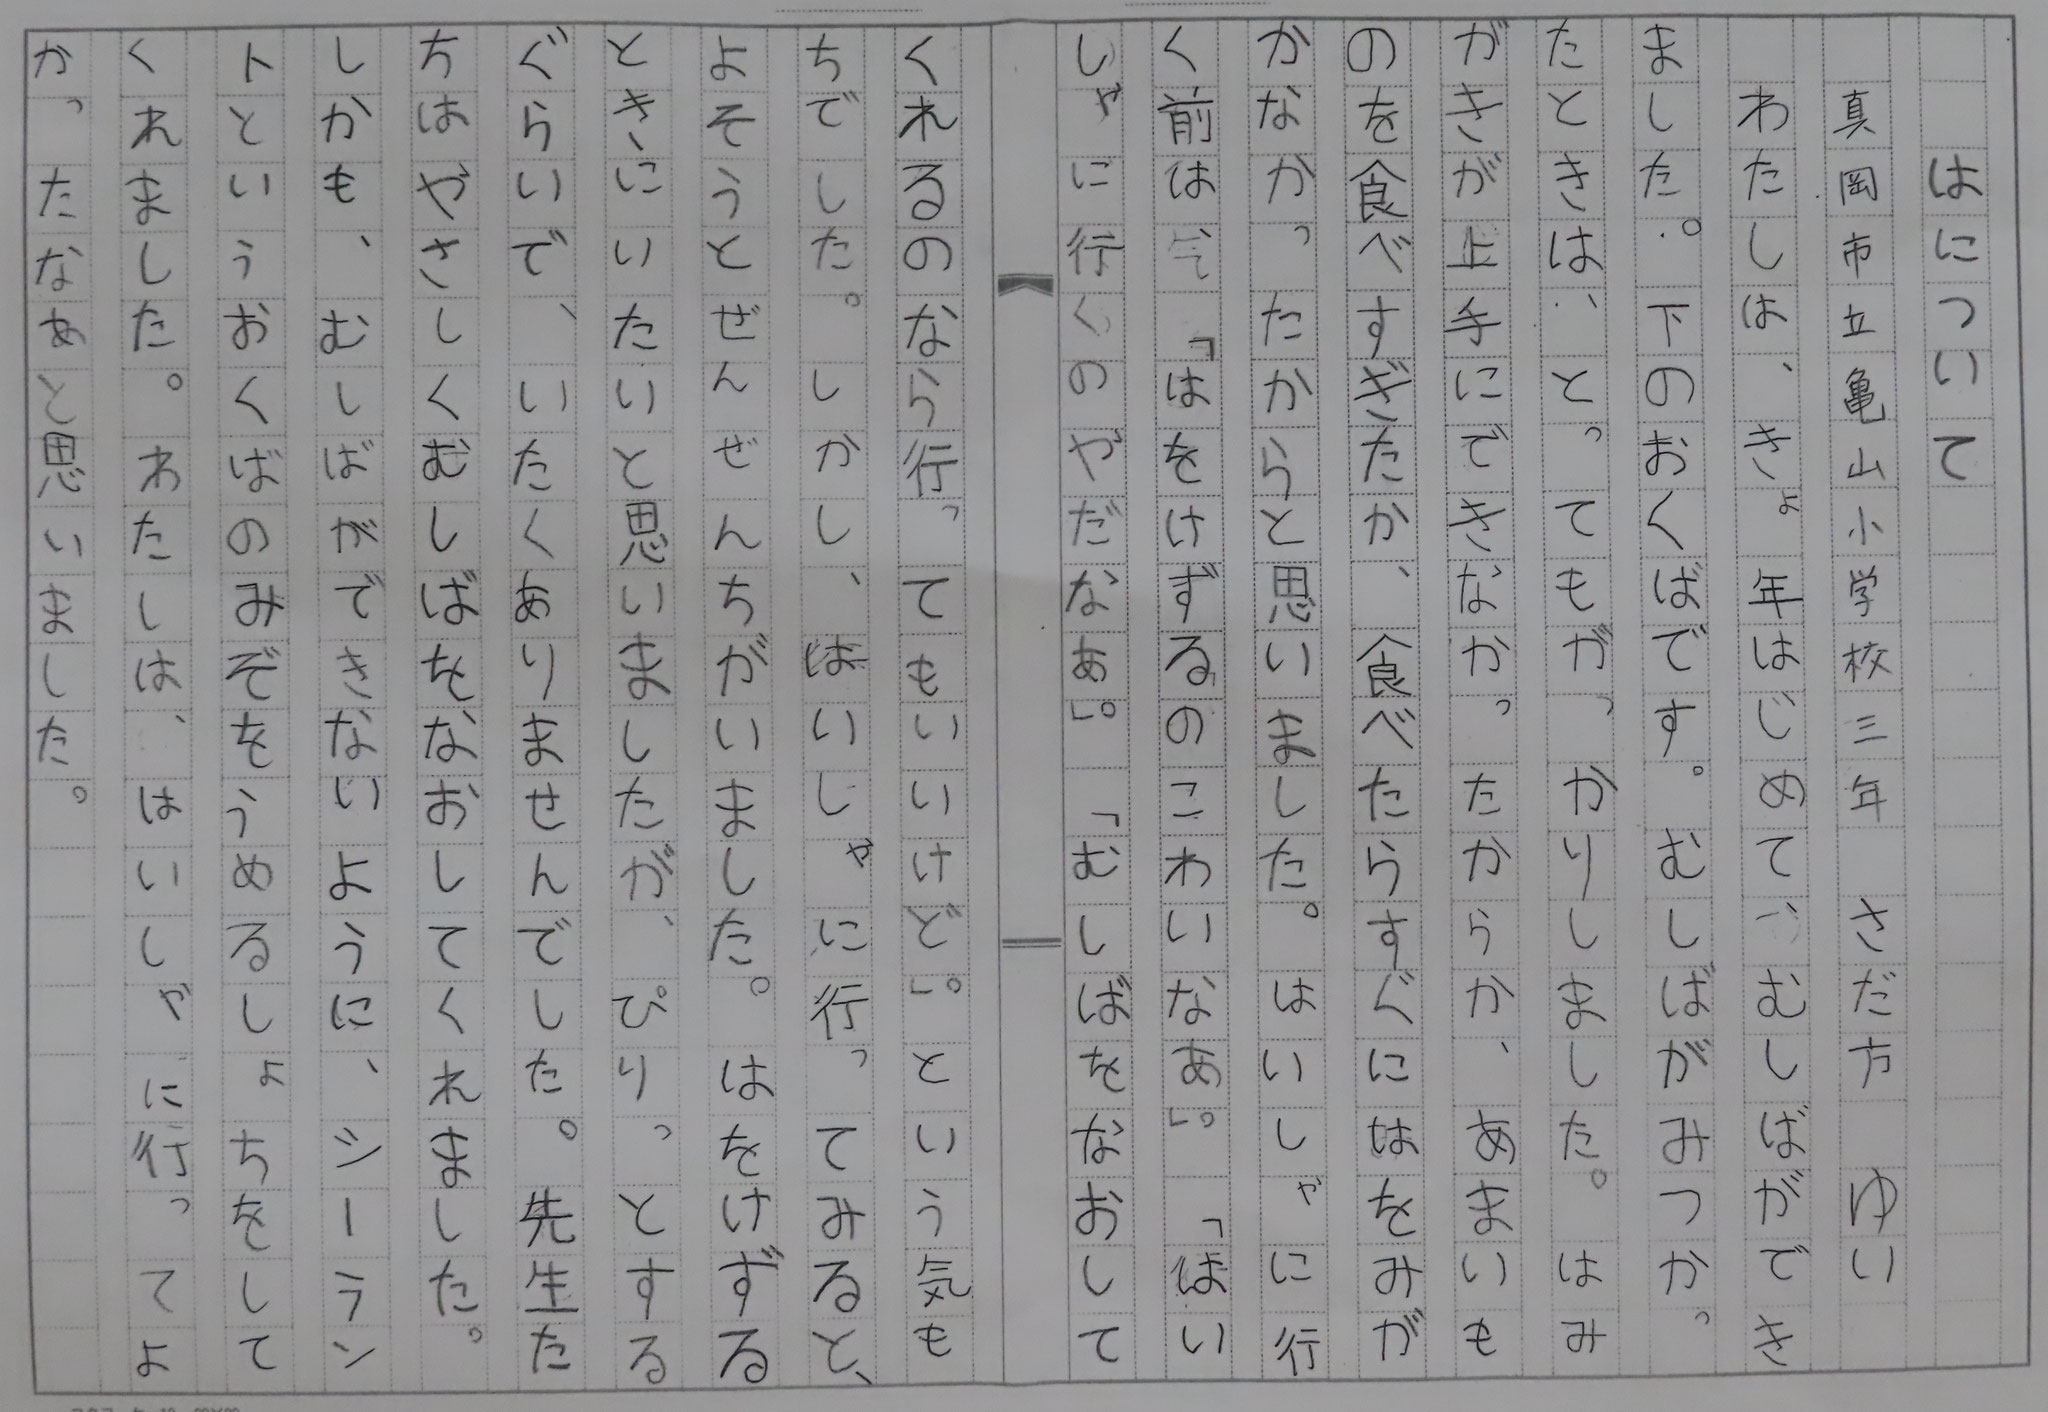 はについて
真岡市立亀山小学校三年　さだ方　ゆい
わたしは、きょ年はじめてむしばができ
ました。下のおくばです。むしばがみつかっ
たときは、とってもがっかりしました。はみ
がきが上手にできなかったからか、あまいも
のを食べすぎたか、食べたらすぐにはをみが
かなかったからと思いました。はいしゃに行
く前は、「はをけずるのこわいなあ」。「はい
しゃに行くのやだなあ」。「むしばをなおして
くれるのなら行ってもいいけど」。という気も
ちでした。しかし、はいしゃに行ってみると、
よそうとぜんぜんちがいました。はをけずる
ときにいたいと思いましたが、ぴりっとする
ぐらいで、いたくありませんでした。先生た
ちはやさしくむしばをなおしてくれました。
しかも、むしばができないように、シーラン
トというおくばのみぞをうめるしょちをして
くれました。わたしは、はいしゃに行ってよ
かったなあと思いました。